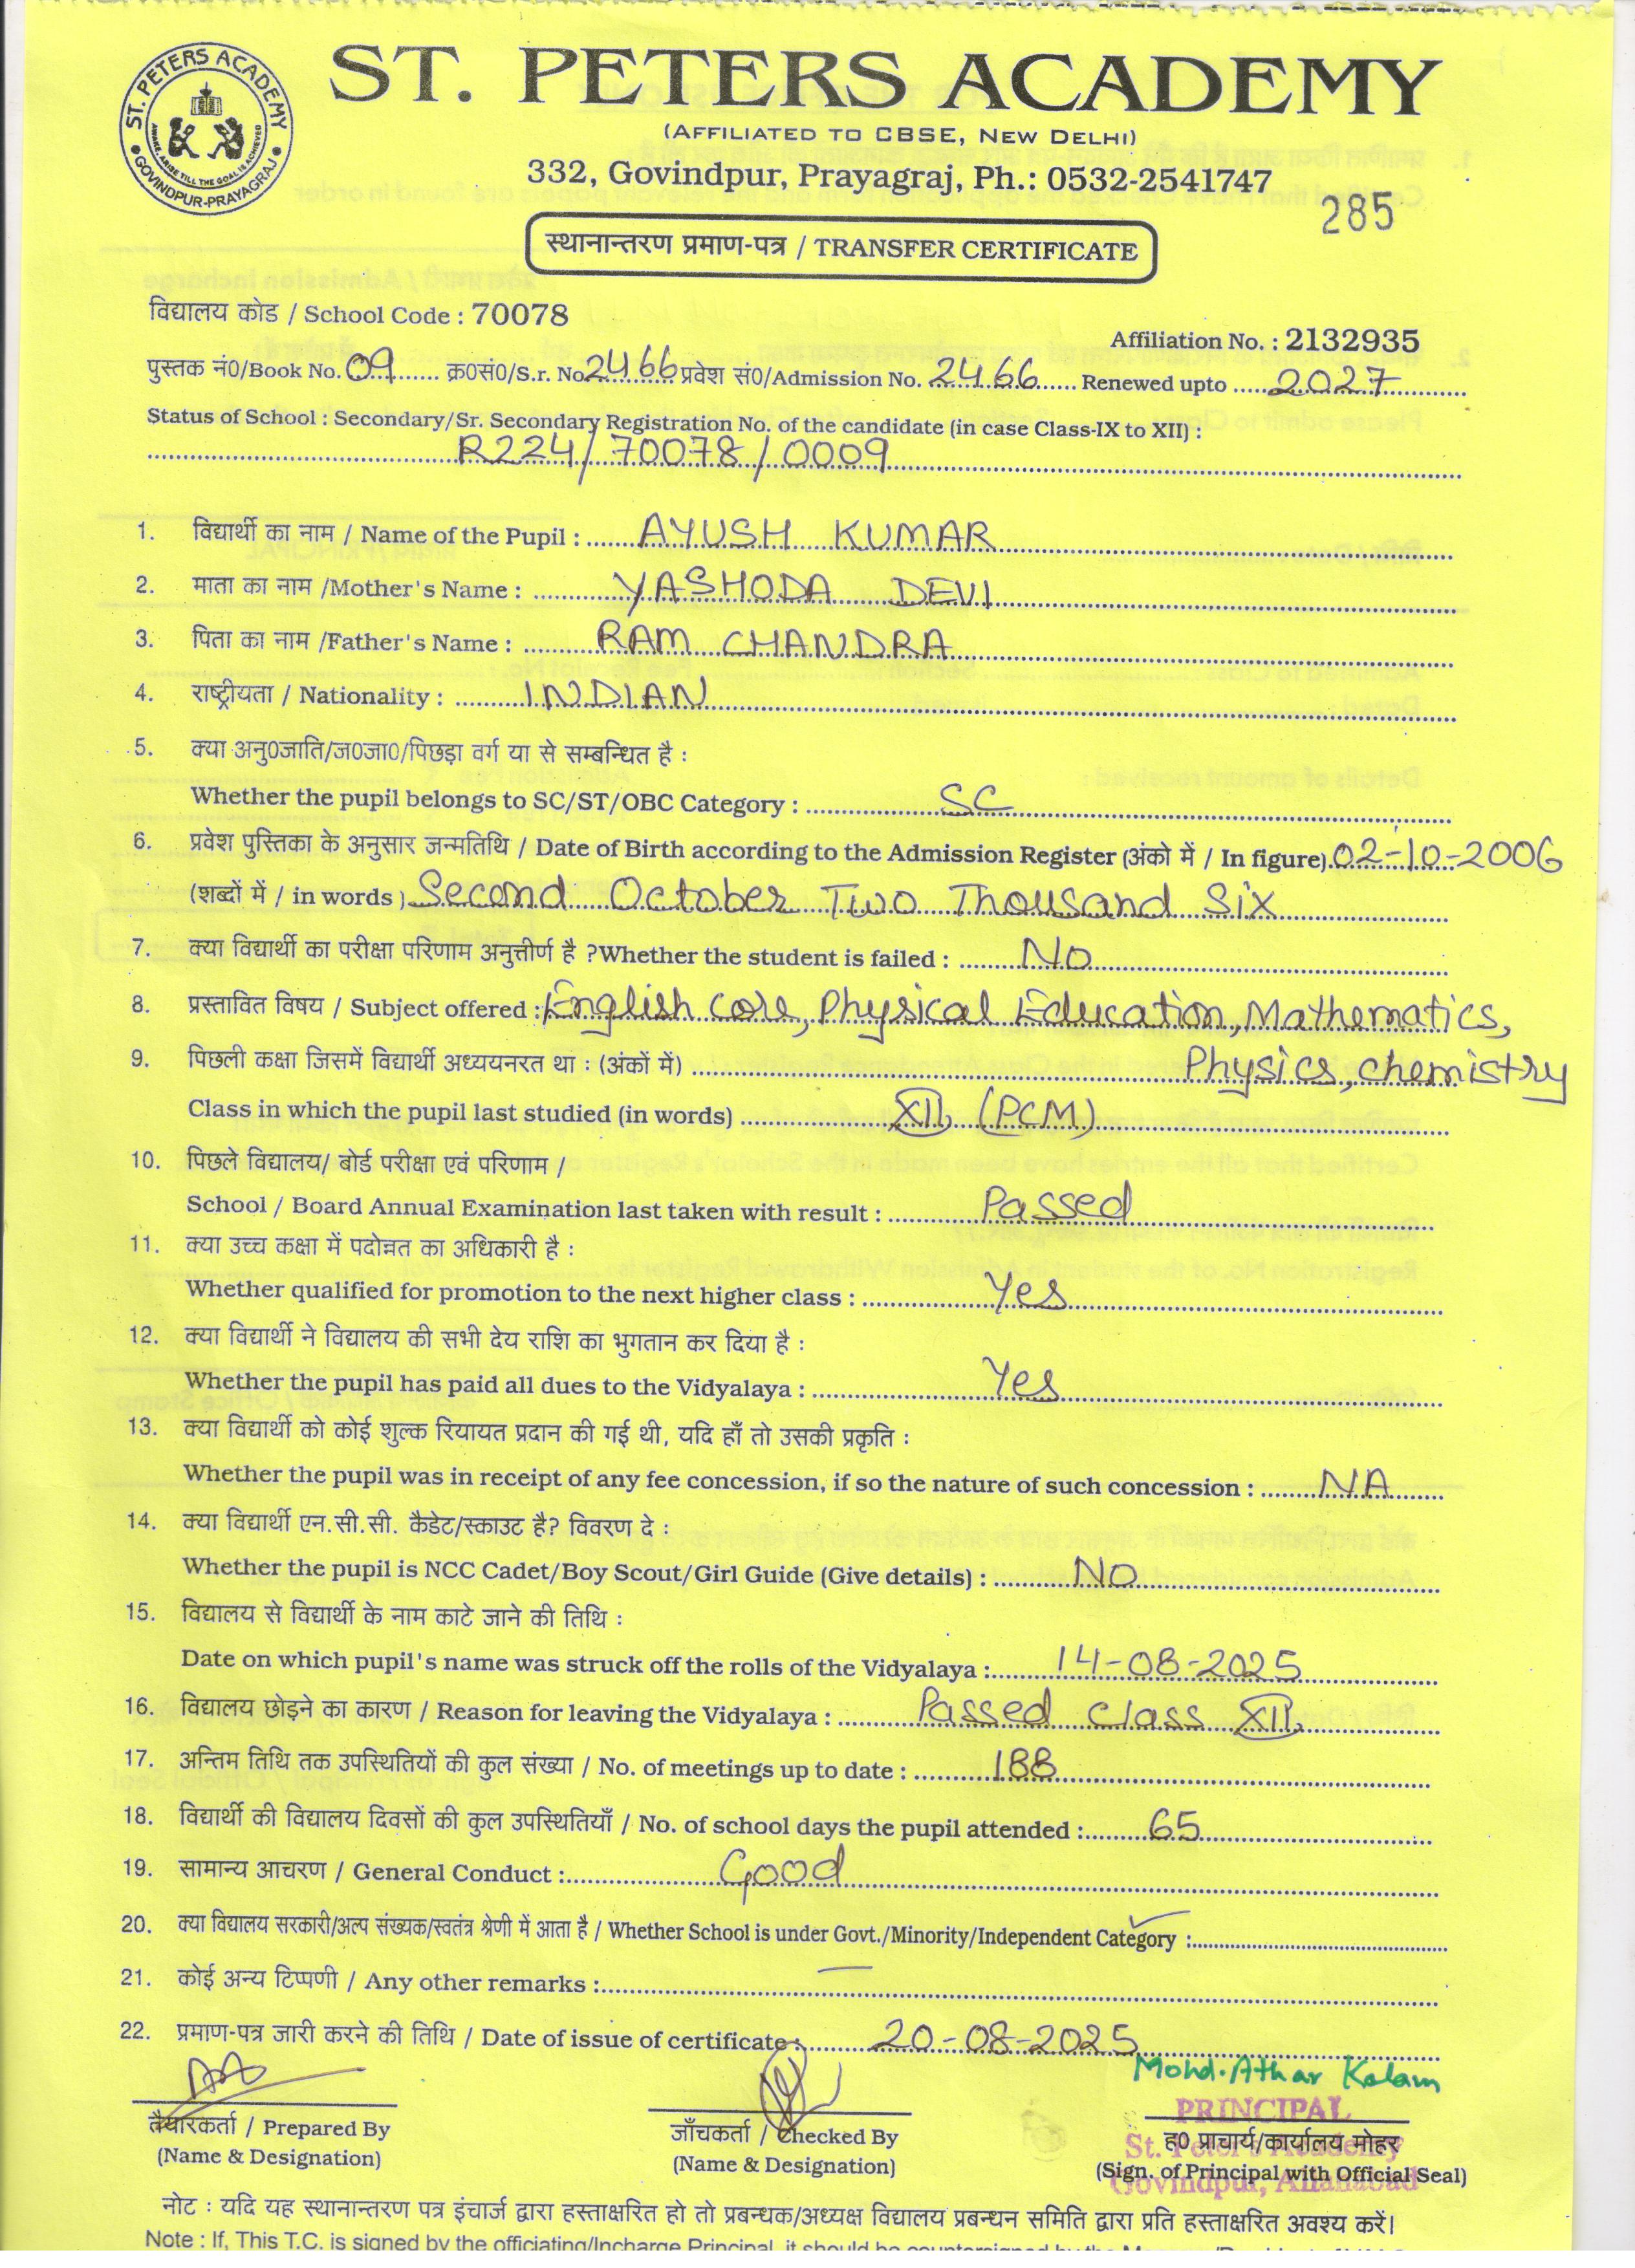 ST. PETERS ACADEMY
ST. PETERS ACADEMY
AWAKE, ARISE TILL THE GOAL IS ACHIEVED
GOVINDPUR-PRAYAGRAJ
(AFFILIATED TO CBSE, NEW DELHI)
332, Govindpur, Prayagraj, Ph.: 0532-2541747
285
स्थानान्तरण प्रमाण-पत्र / TRANSFER CERTIFICATE
विद्यालय कोड / School Code : 70078
Affiliation No. : 2132935
पुस्तक नं0/Book No. 09 क्र0सं0/S.r. No. 2466 प्रवेश सं0/Admission No. 2466 Renewed upto 2027
Status of School : Secondary/Sr. Secondary Registration No. of the candidate (in case Class-IX to XII) :
R224/70078/0009
1. विद्यार्थी का नाम / Name of the Pupil : AYUSH KUMAR
2. माता का नाम /Mother's Name : YASHODA DEVI
3. पिता का नाम /Father's Name : RAM CHANDRA
4. राष्ट्रीयता / Nationality : INDIAN
5. क्या अनु0जाति/ज0जा0/पिछड़ा वर्ग या से सम्बन्धित है :
Whether the pupil belongs to SC/ST/OBC Category : SC
6. प्रवेश पुस्तिका के अनुसार जन्मतिथि / Date of Birth according to the Admission Register (अंको में / In figure) 02-10-2006
(शब्दों में / in words) Second October Two Thousand Six
7. क्या विद्यार्थी का परीक्षा परिणाम अनुत्तीर्ण है ?Whether the student is failed : No
8. प्रस्तावित विषय / Subject offered : English core, Physical Education, Mathematics,
Physics, chemistry
9. पिछली कक्षा जिसमें विद्यार्थी अध्ययनरत था : (अंकों में)
Class in which the pupil last studied (in words) XII (PCM)
10. पिछले विद्यालय/ बोर्ड परीक्षा एवं परिणाम /
School / Board Annual Examination last taken with result : Passed
11. क्या उच्च कक्षा में पदोन्नत का अधिकारी है :
Whether qualified for promotion to the next higher class : Yes
12. क्या विद्यार्थी ने विद्यालय की सभी देय राशि का भुगतान कर दिया है :
Whether the pupil has paid all dues to the Vidyalaya : Yes
13. क्या विद्यार्थी को कोई शुल्क रियायत प्रदान की गई थी, यदि हाँ तो उसकी प्रकृति :
Whether the pupil was in receipt of any fee concession, if so the nature of such concession : NA
14. क्या विद्यार्थी एन.सी.सी. कैडेट/स्काउट है? विवरण दे :
Whether the pupil is NCC Cadet/Boy Scout/Girl Guide (Give details) : NO
15. विद्यालय से विद्यार्थी के नाम काटे जाने की तिथि :
Date on which pupil's name was struck off the rolls of the Vidyalaya : 14-08-2025
16. विद्यालय छोड़ने का कारण / Reason for leaving the Vidyalaya : Passed Class XII
17. अन्तिम तिथि तक उपस्थितियों की कुल संख्या / No. of meetings up to date : 188
18. विद्यार्थी की विद्यालय दिवसों की कुल उपस्थितियाँ / No. of school days the pupil attended : 65
19. सामान्य आचरण / General Conduct : Good
20. क्या विद्यालय सरकारी/अल्प संख्यक/स्वतंत्र श्रेणी में आता है / Whether School is under Govt./Minority/Independent Category :
21. कोई अन्य टिप्पणी / Any other remarks : —
22. प्रमाण-पत्र जारी करने की तिथि / Date of issue of certificate : 20-08-2025
Mohd. Athar Kalam
PRINCIPAL
St. Peter's Academy
Govindpur, Allahabad
तैयारकर्ता / Prepared By
(Name & Designation)
जाँचकर्ता / Checked By
(Name & Designation)
ह0 प्राचार्य/कार्यालय मोहर
(Sign. of Principal with Official Seal)
नोट : यदि यह स्थानान्तरण पत्र इंचार्ज द्वारा हस्ताक्षरित हो तो प्रबन्धक/अध्यक्ष विद्यालय प्रबन्धन समिति द्वारा प्रति हस्ताक्षरित अवश्य करें।
Note : If, This T.C. is signed by the officiating/Incharge Principal, it should be